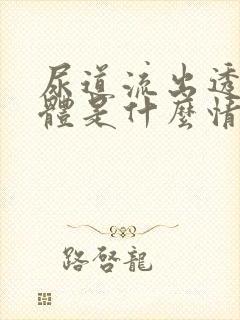 尿道流出透
體是什麼情
路啓龍